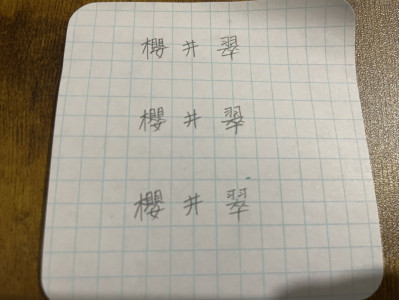 櫻井翠
櫻井翠
櫻井翠